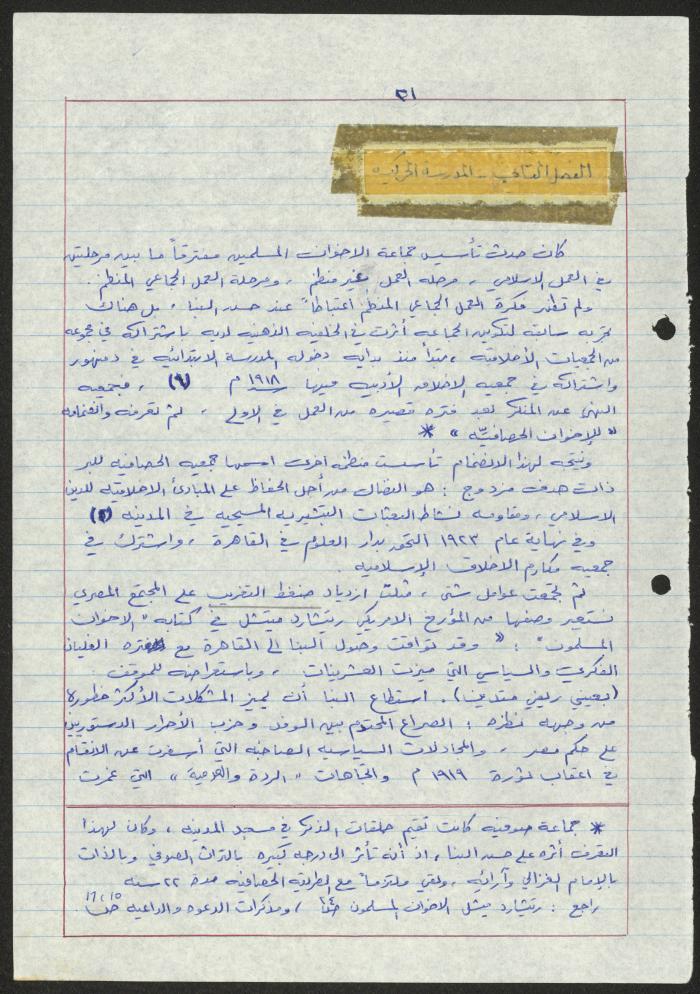 ٣١
الفصل الثاني - المدرسة الحركيه
كان حدث تأسيس جماعة الاخوان المسلمين مفترقاً ما بين مرحلتين
في العمل الاسلامي ، مرحلة العمل غير منظم ، ومرحلة العمل الجماعي المنظم .
ولم تظهر فكرة العمل الجماعي المنظم اعتباطاً عند حسن البنا ، بل هناك
تجربه سابقه لتكوين الجماعه أثرت في الخلفيه الذهنيه لديه باشتراكه في مجموعه
من الجمعيات الأخلاقيه ، مبتدأ منذ بدايه دخوله المدرسة الابتدائيه في دمنهور
واشتراكه في جمعيه الاخلاق الأدبيه فيها ١٩١٨ م (٩) ، فجمعيه
النهي عن المنكر بعد فتره قصيره من العمل في الاولى ، ثم تعرفه وانضمامه
" للإخوان الحصافيّه " *
ونتيجه لهذا الانضمام تأسست منظمه اخرى اسمها جمعيه الحصافيه للبر
ذات هدف مزدوج : هو النضال من أجل الحفاظ على المبادئ الاخلاقيه للدين
الاسلامي ، ومقاومه نشاط البعثات التبشيريه المسيحيه في المدينه
وفي نهاية عام ١٩٢٣ التحق بدار العلوم في القاهرة ، واشترك في
جمعيه مكارم الاخلاق الإسلاميه .
ثم تجمعت عوامل شتى ، مثلت ازدياد ضغط التغريب على المجتمع المصري
نستعير وصفها من المؤرخ الامريكي ريتشارد ميتشل في كتابه " الاخوان
المسلمون " : " وقد توافقت وصول البنا الى القاهرة مع فتره الغليان
الفكري والسياسي التي ميزت العشرينات ، وباستعراضه للموقف
(بعيني ريفي متدين) . استطاع البنا أن يميز المشكلات الأكثر خطورة
من وجهه نظره : الصراع المحتوم بين الوفد وحزب الأحرار الدستوريين
على حكم مصر ، والمجادلات السياسيه الصاخبه التي أسفرت عن الانقسام
في اعقاب ثورة ١٩١٩ م واتجاهات " الردة والعدمية " التي غمرت
* جماعة صوفيه كانت تقيم حلقات الذكر في مسجد المدينه ، وكان لهذا
التعرف أثره على حسن البنا ، اذ أنه تأثر الى درجه كبيره بالتراث الصوفي وبالذات
بالإمام الغزالي وآرائه ، وبقي ملتزماً مع الطريقه الحصافيه مدة ٢٢ سنه
راجع : ريتشارد ميشل الاخوان المسلمون ، ومذكرات الدعوه والداعيه ص ١٥ ، ١٦